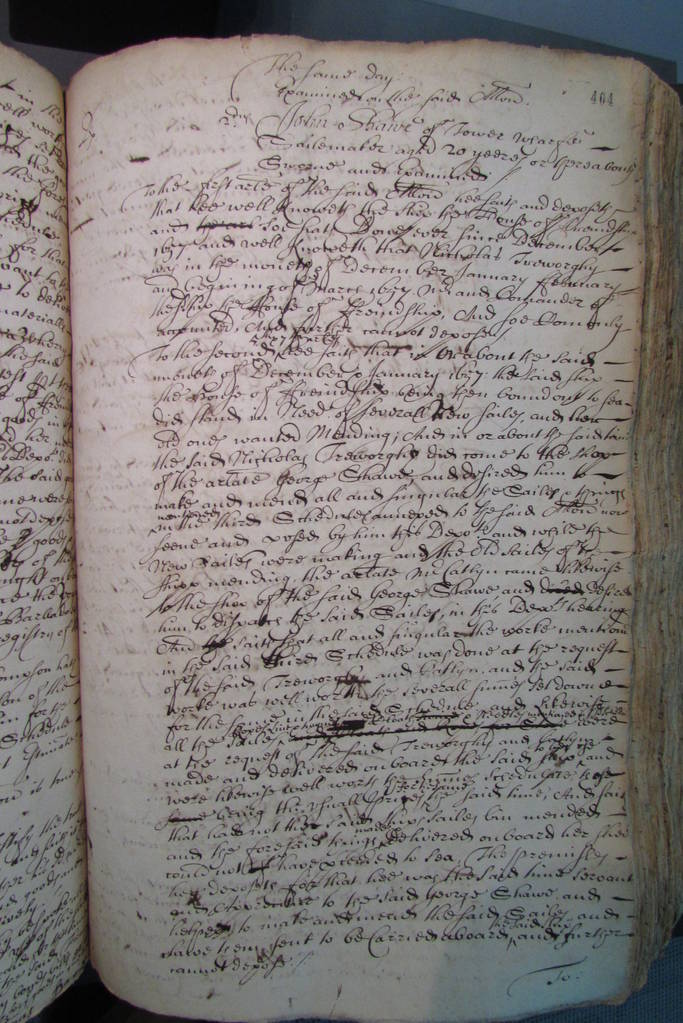 The same day.
Examined on the said Allon.
404
2us
John Shawe of Tower Wharfe
Sailemaker aged 20 yeeres or thereabouts
Sworne and Examined
To the first arle of the said Allon hee saith and deposeth
that hee well knoweth the ship the House of Friendshipp
and soe hath done ever since December
1657 and well knoweth that Nicholas Treworghy
was in the moneths of December January February
and begining of March 1657 Mr and Comander of
the ship the House of Friendship, And soe Comonly
reputed, And further cannot depose
To the second hee saith that in or about the said
moneths of December & January 1657 the said ship
the House of Friendship being then bound out to sea
did stand in Need of severall New sailes, and her
old ones wanted Mending; And in or about the said time
the said Nicholas Treworghy did come to the shop
of the arlate George Shawe, and desired him to
make and mend all and singular the Sailes & things
mentioned
in the third Schedule annexed to the said Allon now
seene and by him this Depont and while the
New Sailes were making and the old Sailes of the
shipp mending the arlate Mr Catlyn came likewise
to the shop of the said George Shawe and desired
him to dispatch the said Sailes, in this Deponts hearing
And saith that all and singular the worke mentioned
in the said third Schedule was done at the request
of the said Treworghy and Catlyn, and the said
worke was well worth the severall summes set downe
for the same in the said Schedule, and likewise
all the
at the request of the said Treworghy and Catlyn
made and delivered on board the said ship, and
were likewise well worth the
being the usuall prices the said time; And saith
that had not the said ships sailes bin mended
and the foresaid things made delivered on board her shee
could not have proceeded to sea, The premisses
hee deposeth for that hee was the said time servant
and to the said George Shawe and
helped to make and mend the said Sailes, and
have them sent to be Carried aboard the said ship, and further
cannot depose /
To